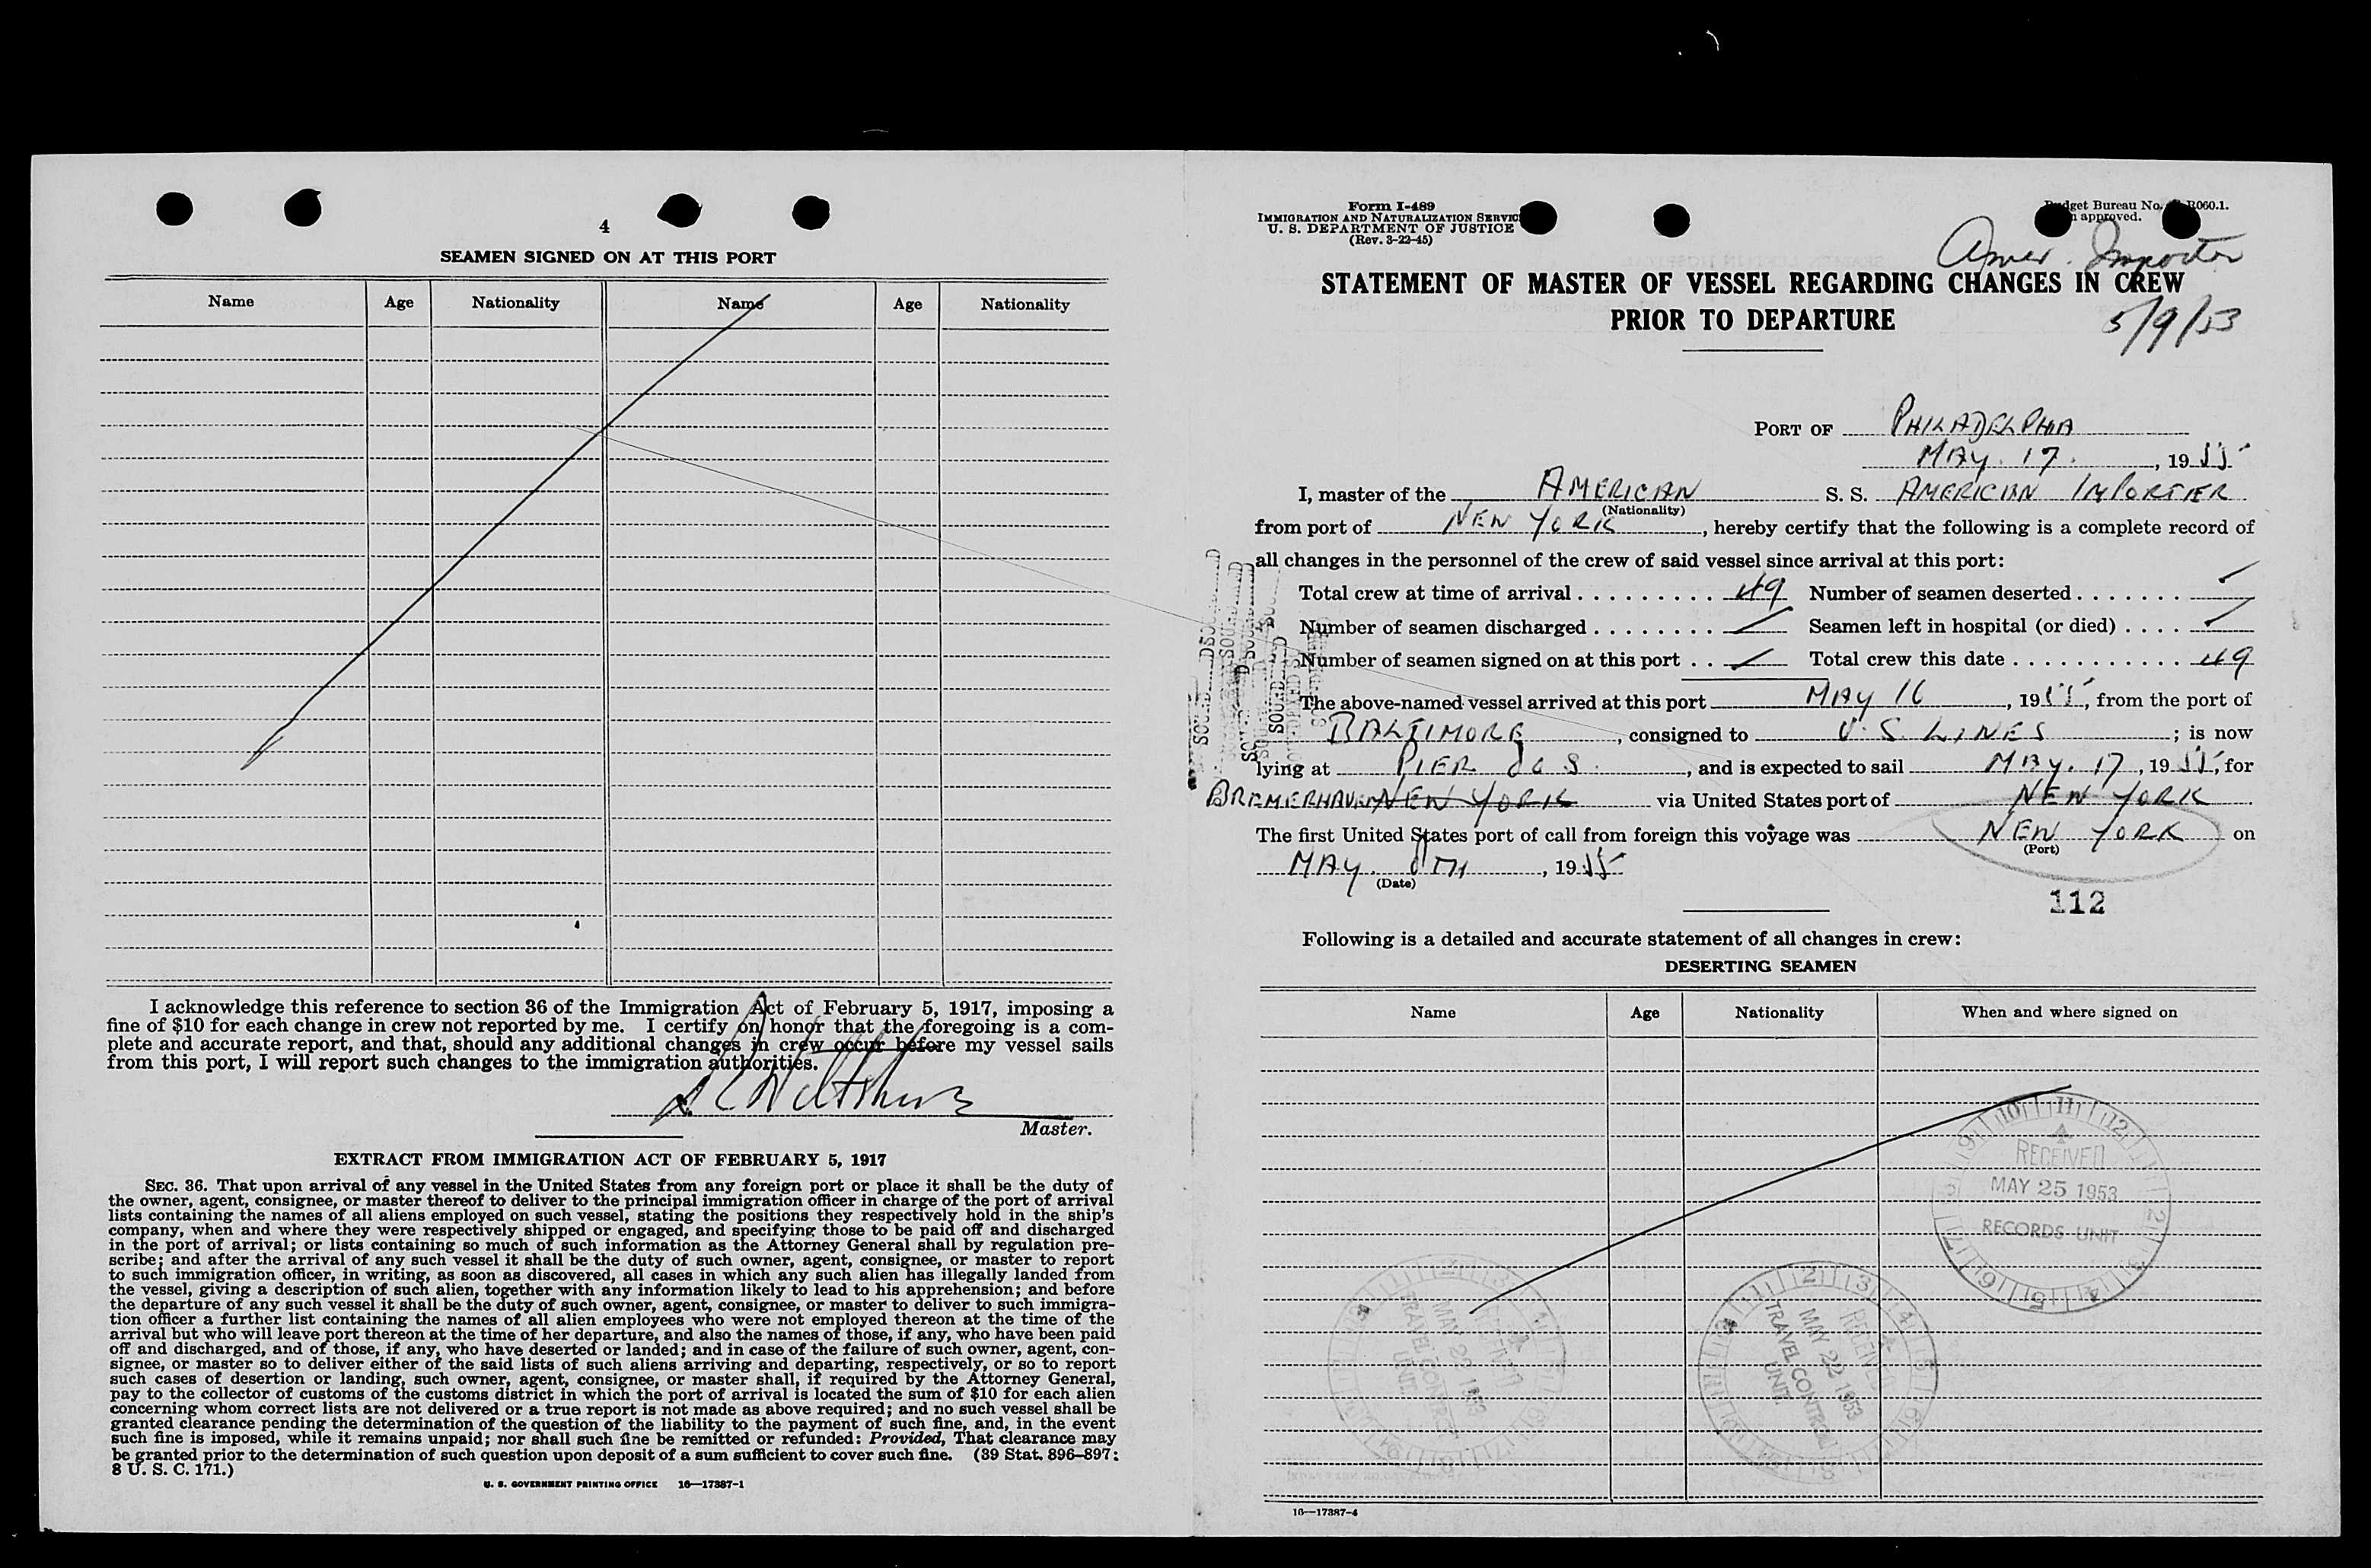 4
SEAMEN SIGNED ON AT THIS PORT
Name Age Nationality Name Age Nationality
I acknowledge this reference to section 36 of the Immigration Act of February 5, 1917, imposing a
fine of $10 for each change in crew not reported by me. I certify on honor that the foregoing is a com-
plete and accurate report, and that, should any additional changes in crew occur before my vessel sails
from this port, I will report such changes to the immigration authorities.
Master.
EXTRACT FROM IMMIGRATION ACT OF FEBRUARY 5, 1917
SEC. 36. That upon arrival of any vessel in the United States from any foreign port or place it shall be the duty of
the owner, agent, consignee, or master thereof to deliver to the principal immigration officer in charge of the port of arrival
lists containing the names of all aliens employed on such vessel, stating the positions they respectively hold in the ship's
company, when and where they were respectively shipped or engaged, and specifying those to be paid off and discharged
in the port of arrival; or lists containing so much of such information as the Attorney General shall by regulation pre-
scribe; and after the arrival of any such vessel it shall be the duty of such owner, agent, consignee, or master to report
to such immigration officer, in writing, as soon as discovered, all cases in which any such alien has illegally landed from
the vessel, giving a description of such alien, together with any information likely to lead to his apprehension; and before
the departure of any such vessel it shall be the duty of such owner, agent, consignee, or master to deliver to such immigra-
tion officer a further list containing the names of all alien employees who were not employed thereon at the time of the
arrival but who will leave port thereon at the time of her departure, and also the names of those, if any, who have been paid
off and discharged, and of those, if any, who have deserted or landed; and in case of the failure of such owner, agent, con-
signee, or master so to deliver either of the said lists of such aliens arriving and departing, respectively, or so to report
such cases of desertion or landing, such owner, agent, consignee, or master shall, if required by the Attorney General,
pay to the collector of customs of the customs district in which the port of arrival is located the sum of $10 for each alien
concerning whom correct lists are not delivered or a true report is not made as above required; and no such vessel shall be
granted clearance pending the determination of the question of the liability to the payment of such fine, and, in the event
such fine is imposed, while it remains unpaid; nor shall such fine be remitted or refunded: Provided, That clearance may
be granted prior to the determination of such question upon deposit of a sum sufficient to cover such fine. (39 Stat. 896–897;
8 U. S. C. 171.)
U. S. GOVERNMENT PRINTING OFFICE 16—17387-1
Form I-489
IMMIGRATION AND NATURALIZATION SERVIC
U. S. DEPARTMENT OF JUSTICE
(Rev. 3-22-45)
dget Bureau No. R060.1.
approved.
Amer. Importer
STATEMENT OF MASTER OF VESSEL REGARDING CHANGES IN CREW
PRIOR TO DEPARTURE
5/9/53
PORT OF PHILADELPHIA
MAY. 17. , 19
I, master of the AMERICAN S. S. AMERICAN IMPORTER
(Nationality)
from port of NEW YORK, hereby certify that the following is a complete record of
all changes in the personnel of the crew of said vessel since arrival at this port:
Total crew at time of arrival . . . . . . . . . 49 Number of seamen deserted . . . . . . .
Number of seamen discharged . . . . . . . . Seamen left in hospital (or died) . . . .
Number of seamen signed on at this port . . Total crew this date . . . . . . . . . . . 49
The above-named vessel arrived at this port MAY 16, 19 , from the port of
BALTIMORE, consigned to U. S LINES ; is now
lying at PIER S., and is expected to sail MAY. 17, 19 , for
BREMERHAVEN NEW YORK via United States port of NEW YORK
The first United States port of call from foreign this voyage was NEW YORK on
(Port)
MAY. , 19
(Date)
112
Following is a detailed and accurate statement of all changes in crew:
DESERTING SEAMEN
Name Age Nationality When and where signed on
RECEIVED
MAY 25 1953
RECORDS UNIT
RECEIVED
MAY 22 1953
TRAVEL CONTROL
UNIT.
MAY 22 1953
TRAVEL CONTROL
UNIT.
16—17387-4